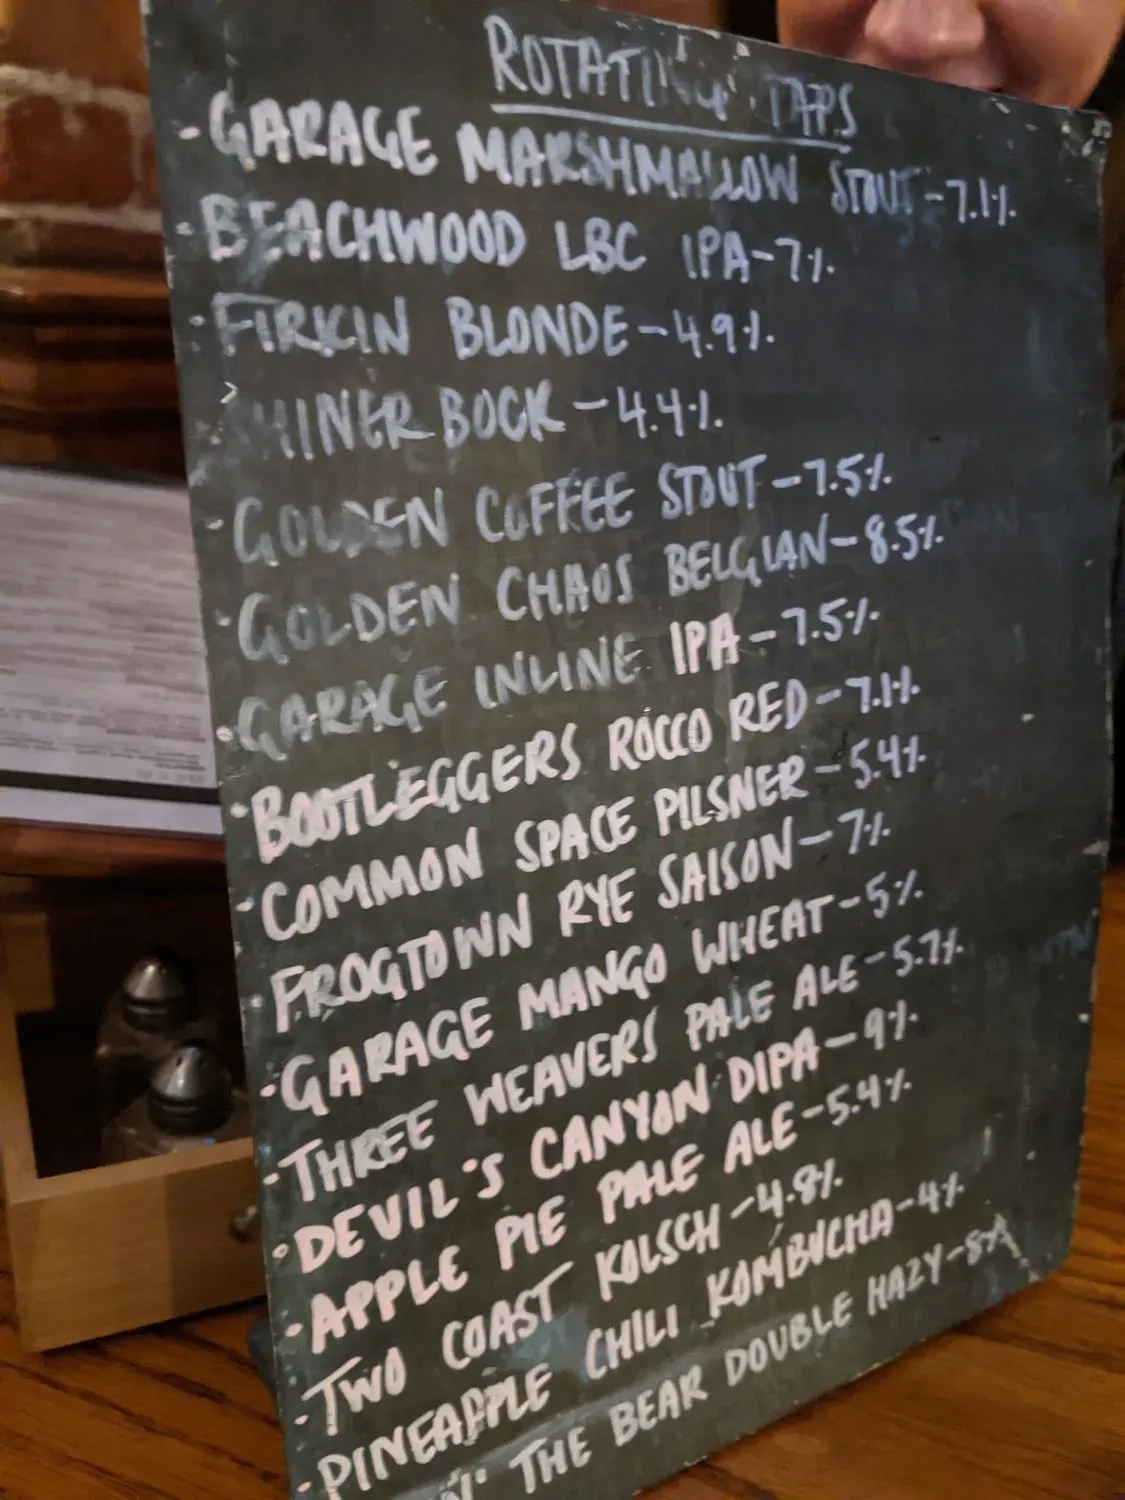 ROTATING TAPS
- GARAGE MARSHMALLOW STOUT - 7.1%
- BEACHWOOD LBC IPA - 7%
- FIRKIN BLONDE - 4.9%
SHINER BOCK - 4.4%
- GOLDEN COFFEE STOUT - 7.5%
- GOLDEN CHAOS BELGIAN - 8.5%
- GARAGE INLINE IPA - 7.5%
- BOOTLEGGERS ROCCO RED - 7.1%
- COMMON SPACE PILSNER - 5.4%
- FROGTOWN RYE SAISON - 7%
- GARAGE MANGO WHEAT - 5%
- THREE WEAVERS PALE ALE - 5.7%
- DEVIL'S CANYON DIPA - 9%
- APPLE PIE PALE ALE - 5.4%
- TWO COAST KOLSCH - 4.8%
- PINEAPPLE CHILI KOMBUCHA - 4%
THE BEAR DOUBLE HAZY - 8%